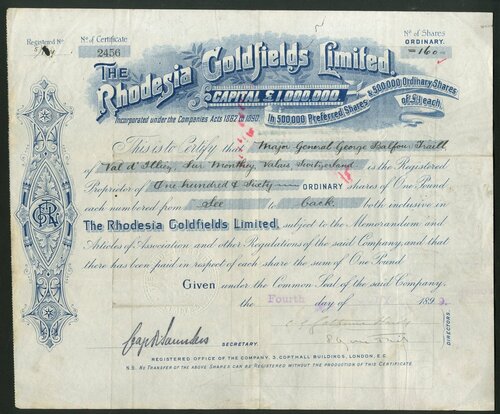 Registered No. Nº of Certificate Nº of Shares
2456 ORDINARY.
=160=
THE
Rhodesia Goldfields Limited.
CAPITAL £1,000,000
In 500,000 Preferred Shares & 500,000 Ordinary Shares
of £1 each.
Incorporated under the Companies Acts 1862 to 1890.
This is to Certify that Major General George Balfour Traill
of Val d'Illiez, Sur Monthey, Valais Switzerland is the Registered
Proprietor of One hundred & Sixty ORDINARY shares of One Pound
each numbered from See to back. both inclusive in
The Rhodesia Goldfields Limited, subject to the Memorandum and
Articles of Association and other Regulations of the said Company, and that
there has been paid in respect of each share the sum of One Pound
Given under the Common Seal of the said Company,
the Fourth day of 189
SECRETARY. Saunders
DIRECTORS.
REGISTERED OFFICE OF THE COMPANY, 3, COPTHALL BUILDINGS, LONDON, E.C.
N.B. NO TRANSFER OF THE ABOVE SHARES CAN BE REGISTERED WITHOUT THE PRODUCTION OF THIS CERTIFICATE.